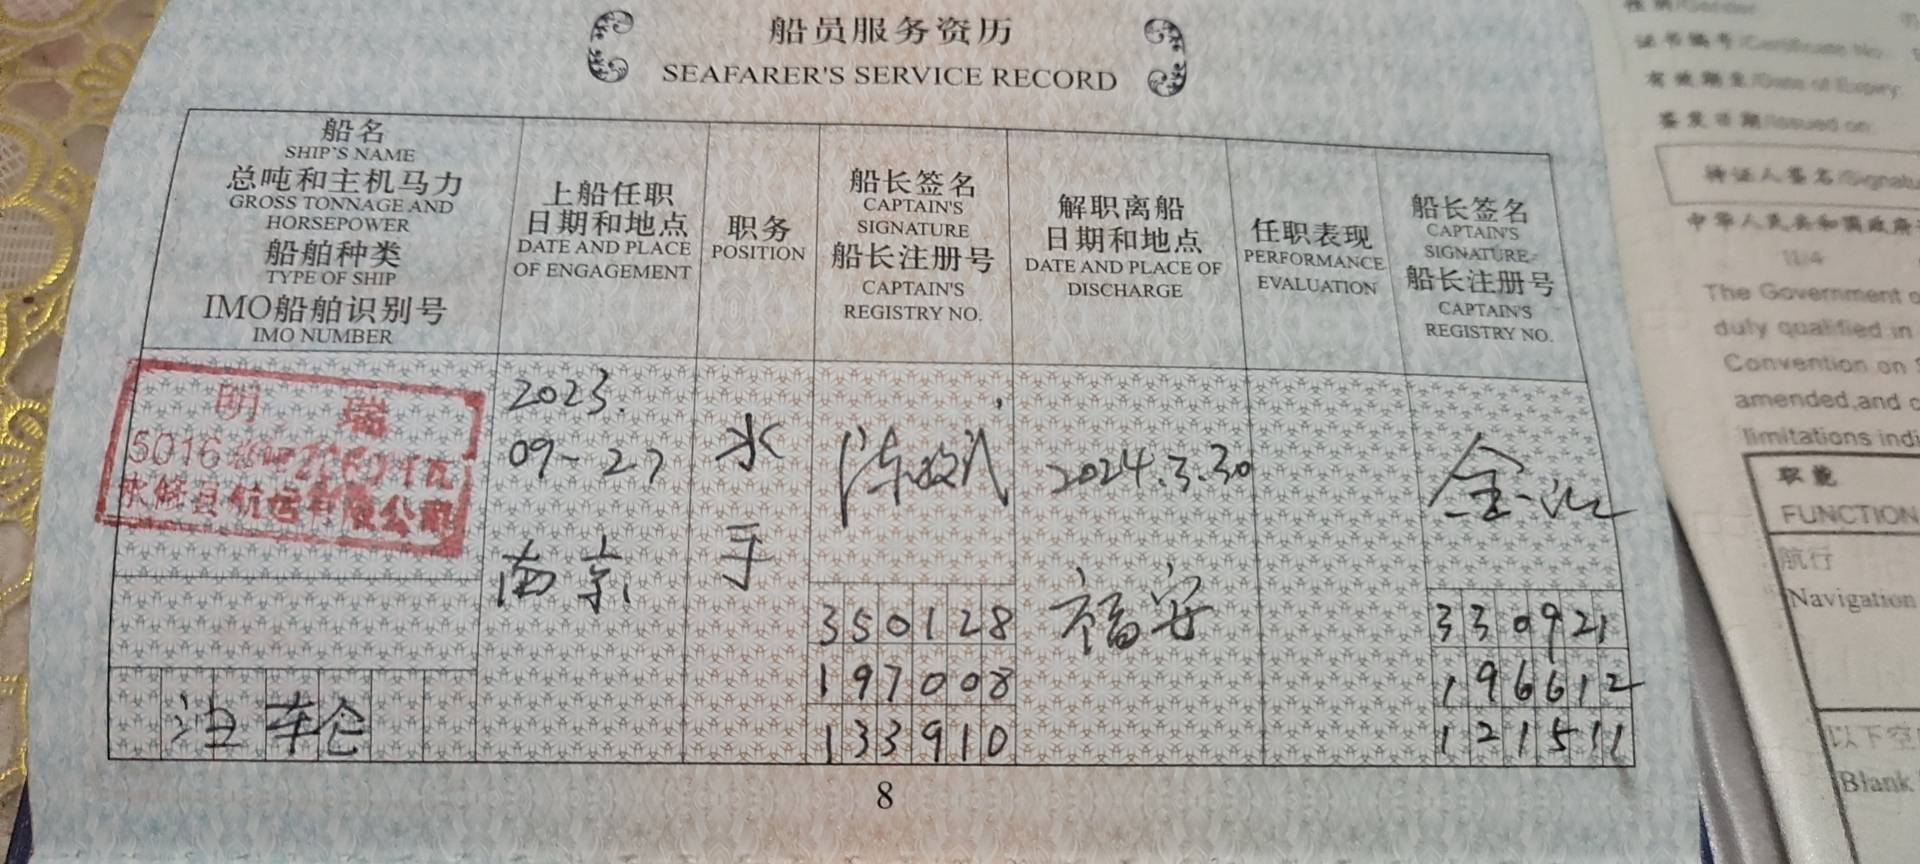 船员服务资历
SEAFARER'S SERVICE RECORD
船名
SHIP'S NAME
总吨和主机马力
GROSS TONNAGE AND
HORSEPOWER
船舶种类
TYPE OF SHIP
IMO船舶识别号
IMO NUMBER
上船任职
日期和地点
DATE AND PLACE
OF ENGAGEMENT
职务
POSITION
船长签名
CAPTAIN'S
SIGNATURE
船长注册号
CAPTAIN'S
REGISTRY NO.
解职离船
日期和地点
DATE AND PLACE OF
DISCHARGE
任职表现
PERFORMANCE
EVALUATION
船长签名
CAPTAIN'S
SIGNATURE
船长注册号
CAPTAIN'S
REGISTRY NO.
明 瑞
5016
县航运有限公司
2023.
09-27
南京
水
手
350128
197008
133910
2024.3.30
福安
金
330921
196612
121511
8
证书编号/Certificate No.
有效期至/Date of Expiry
签发日期/Issued on
持证人签名/Signatu
中华人民共和国政府
The Government o
duly qualified in
Convention on
amended,and c
limitations indi
职能
FUNCTION
航行
Navigation
以下空
Blank